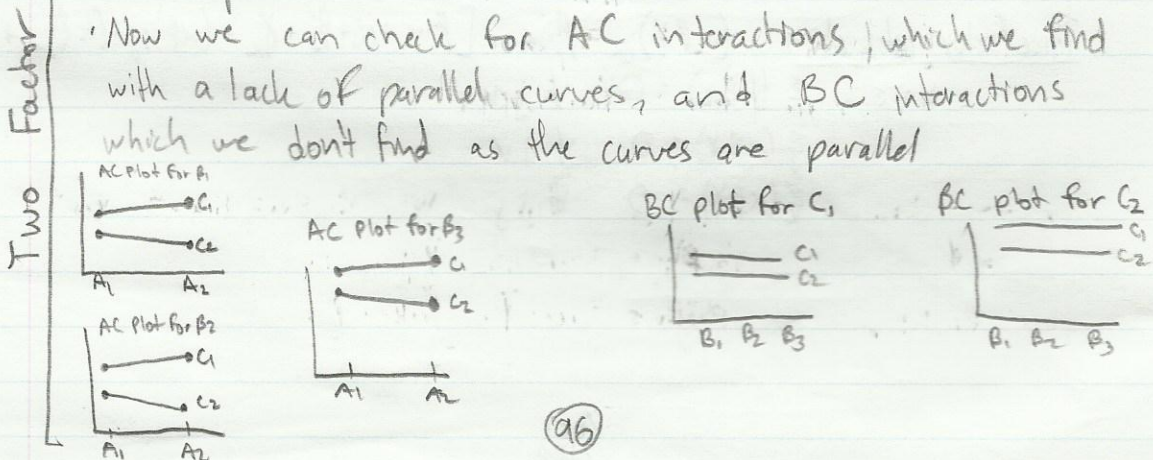 Two Factor
· Now we can check for AC interactions, which we find
with a lack of parallel curves, and BC interactions
which we don't find as the curves are parallel
AC Plot for B1
C1
C2
A1 A2
AC Plot for B2
C1
C2
A1 A2
AC Plot for B3
C1
C2
A1 A2
BC plot for C1
C1
C2
B1 B2 B3
BC plot for C2
C1
C2
B1 B2 B3
96